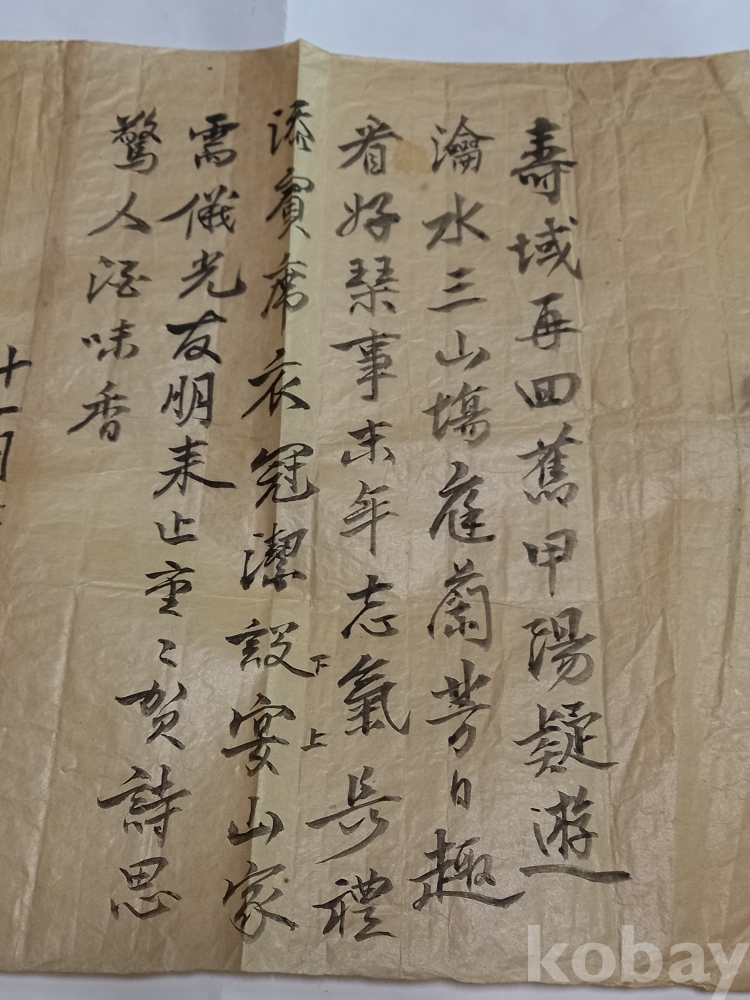 壽域再回舊甲陽疑遊
瀹水三山塲庭蘭芳日趣
看好琹事末年志氣長禮
添賓席衣冠潔設宴山家
下
上
需儀光友朋来止重〻賀詩思
驚人酒味香
十一月
kobay